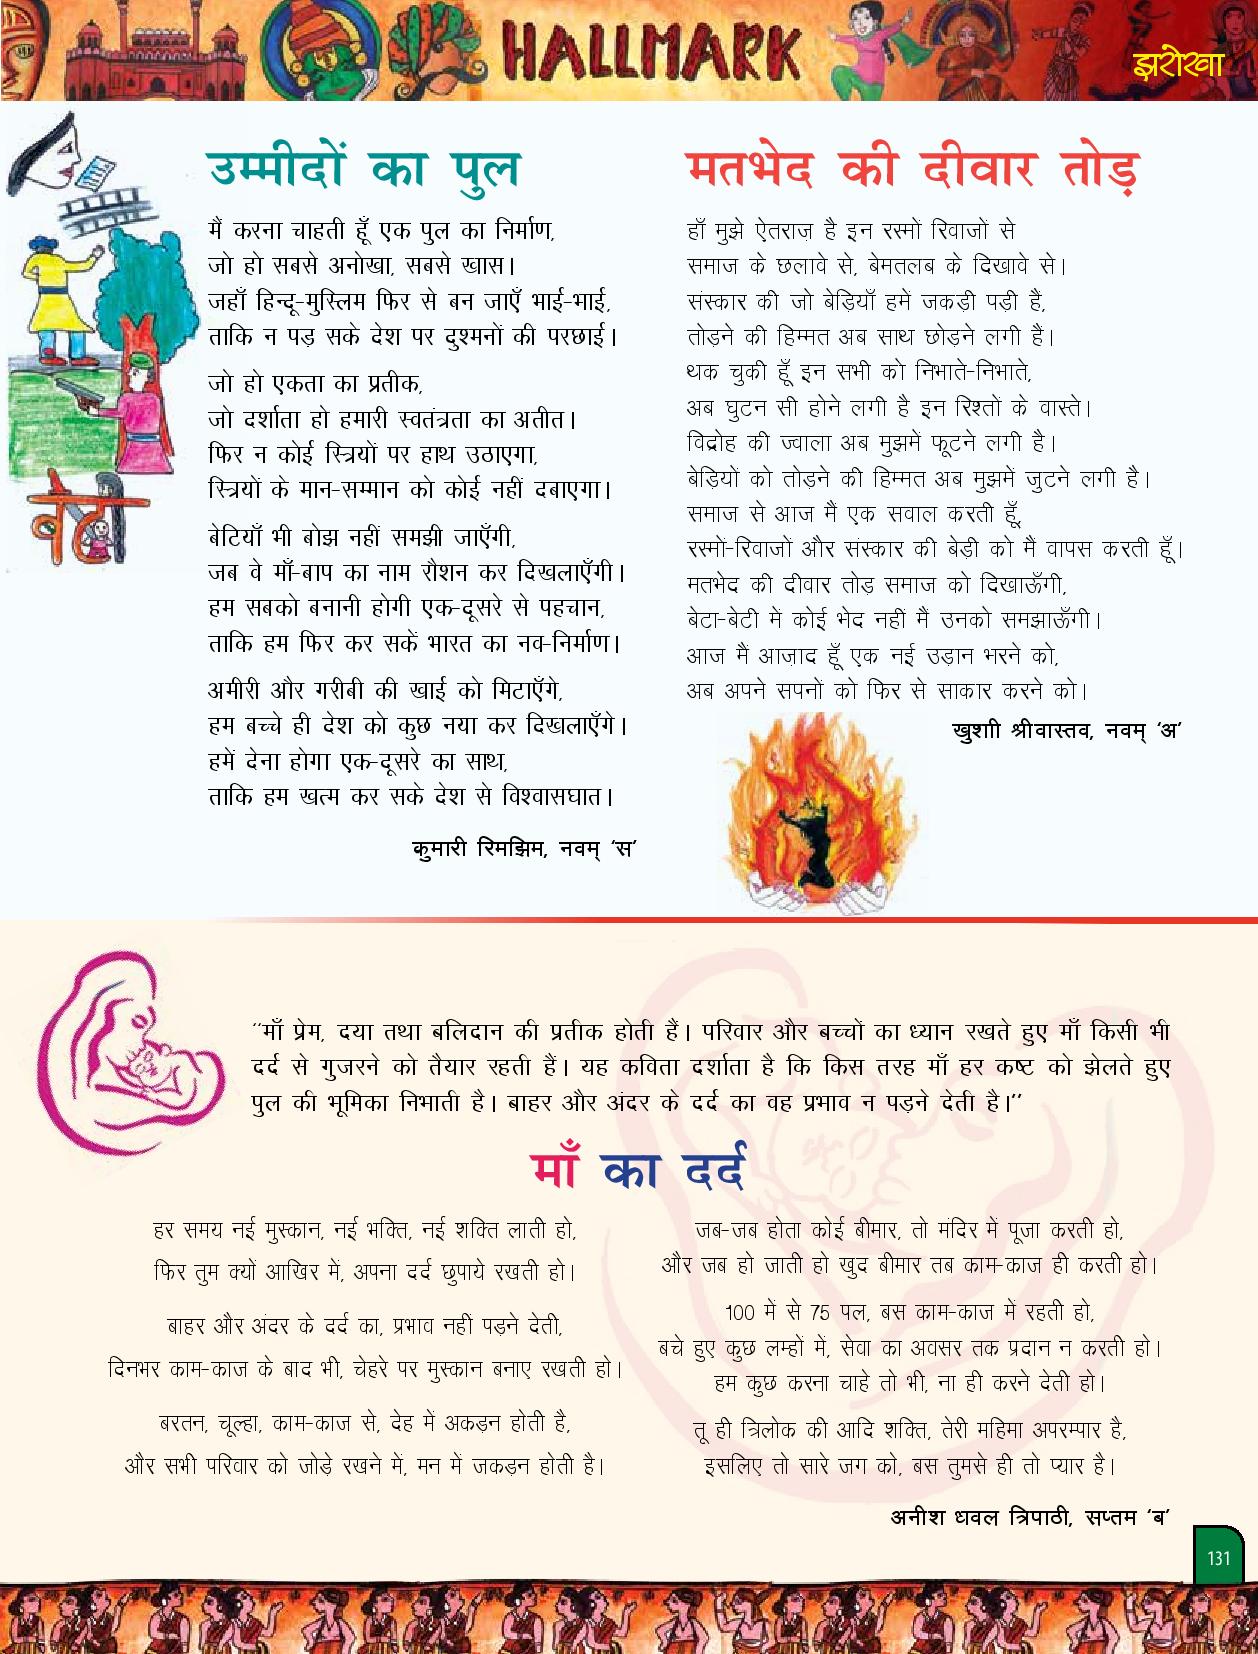 HALLMARK
झरोखा
उम्मीदों का पुल
मैं करना चाहती हूँ एक पुल का निर्माण,
जो हो सबसे अनोखा, सबसे खास।
जहाँ हिन्दू-मुस्लिम फिर से बन जाएँ भाई-भाई,
ताकि न पड़ सके देश पर दुश्मनों की परछाई।
जो हो एकता का प्रतीक,
जो दर्शाता हो हमारी स्वतंत्रता का अतीत।
फिर न कोई स्त्रियों पर हाथ उठाएगा,
स्त्रियों के मान-सम्मान को कोई नहीं दबाएगा।
बेटियाँ भी बोझ नहीं समझी जाएँगी,
जब वे माँ-बाप का नाम रौशन कर दिखलाएँगी।
हम सबको बनानी होगी एक-दूसरे से पहचान,
ताकि हम फिर कर सकें भारत का नव-निर्माण।
अमीरी और गरीबी की खाई को मिटाएँगे,
हम बच्चे ही देश को कुछ नया कर दिखलाएँगे।
हमें देना होगा एक-दूसरे का साथ,
ताकि हम खत्म कर सके देश से विश्वासघात।
कुमारी रिमझिम, नवम् ‘स’
बेटी
मतभेद की दीवार तोड़
हाँ मुझे ऐतराज़ है इन रस्मों रिवाजों से
समाज के छलावे से, बेमतलब के दिखावे से।
संस्कार की जो बेड़ियाँ हमें जकड़ी पड़ी हैं,
तोड़ने की हिम्मत अब साथ छोड़ने लगी हैं।
थक चुकी हूँ इन सभी को निभाते-निभाते,
अब घुटन सी होने लगी है इन रिश्तों के वास्ते।
विद्रोह की ज्वाला अब मुझमें फूटने लगी है।
बेड़ियों को तोड़ने की हिम्मत अब मुझमें जुटने लगी है।
समाज से आज मैं एक सवाल करती हूँ,
रस्मों-रिवाजों और संस्कार की बेड़ी को मैं वापस करती हूँ।
मतभेद की दीवार तोड़ समाज को दिखाऊँगी,
बेटा-बेटी में कोई भेद नहीं मैं उनको समझाऊँगी।
आज मैं आज़ाद हूँ एक नई उड़ान भरने को,
अब अपने सपनों को फिर से साकार करने को।
खुशी श्रीवास्तव, नवम् ‘अ’
‘‘माँ प्रेम, दया तथा बलिदान की प्रतीक होती हैं। परिवार और बच्चों का ध्यान रखते हुए माँ किसी भी
दर्द से गुजरने को तैयार रहती हैं। यह कविता दर्शाता है कि किस तरह माँ हर कष्ट को झेलते हुए
पुल की भूमिका निभाती है। बाहर और अंदर के दर्द का वह प्रभाव न पड़ने देती है।’’
माँ का दर्द
हर समय नई मुस्कान, नई भक्ति, नई शक्ति लाती हो,
फिर तुम क्यों आखिर में, अपना दर्द छुपाये रखती हो।
बाहर और अंदर के दर्द का, प्रभाव नहीं पड़ने देती,
दिनभर काम-काज के बाद भी, चेहरे पर मुस्कान बनाए रखती हो।
बरतन, चूल्हा, काम-काज से, देह में अकड़न होती है,
और सभी परिवार को जोड़े रखने में, मन में जकड़न होती है।
जब-जब होता कोई बीमार, तो मंदिर में पूजा करती हो,
और जब हो जाती हो खुद बीमार तब काम-काज ही करती हो।
100 में से 75 पल, बस काम-काज में रहती हो,
बचे हुए कुछ लम्हों में, सेवा का अवसर तक प्रदान न करती हो।
हम कुछ करना चाहे तो भी, ना ही करने देती हो।
तू ही त्रिलोक की आदि शक्ति, तेरी महिमा अपरम्पार है,
इसलिए तो सारे जग को, बस तुमसे ही तो प्यार है।
अनीश धवल त्रिपाठी, सप्तम ‘ब’
131